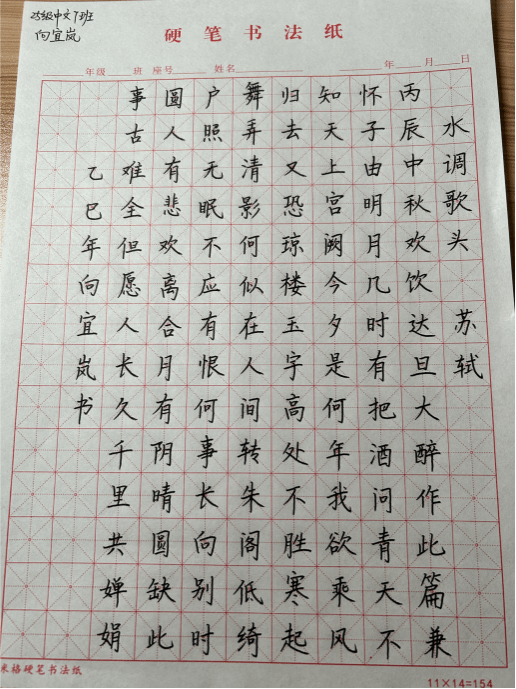 25级中文7班
向宜岚
硬笔书法纸
年级 班 座号 姓名 年 月 日
水调歌头 苏轼
丙辰中秋欢饮达旦大醉作此篇兼
怀子由明月几时有把酒问青天不
知天上宫阙今夕是何年我欲乘风
归去又恐琼楼玉宇高处不胜寒起
舞弄清影何似在人间转朱阁低绮
户照无眠不应有恨何事长向别时
圆人有悲欢离合月有阴晴圆缺此
事古难全但愿人长久千里共婵娟
乙巳年向宜岚书
米格硬笔书法纸
11×14=154